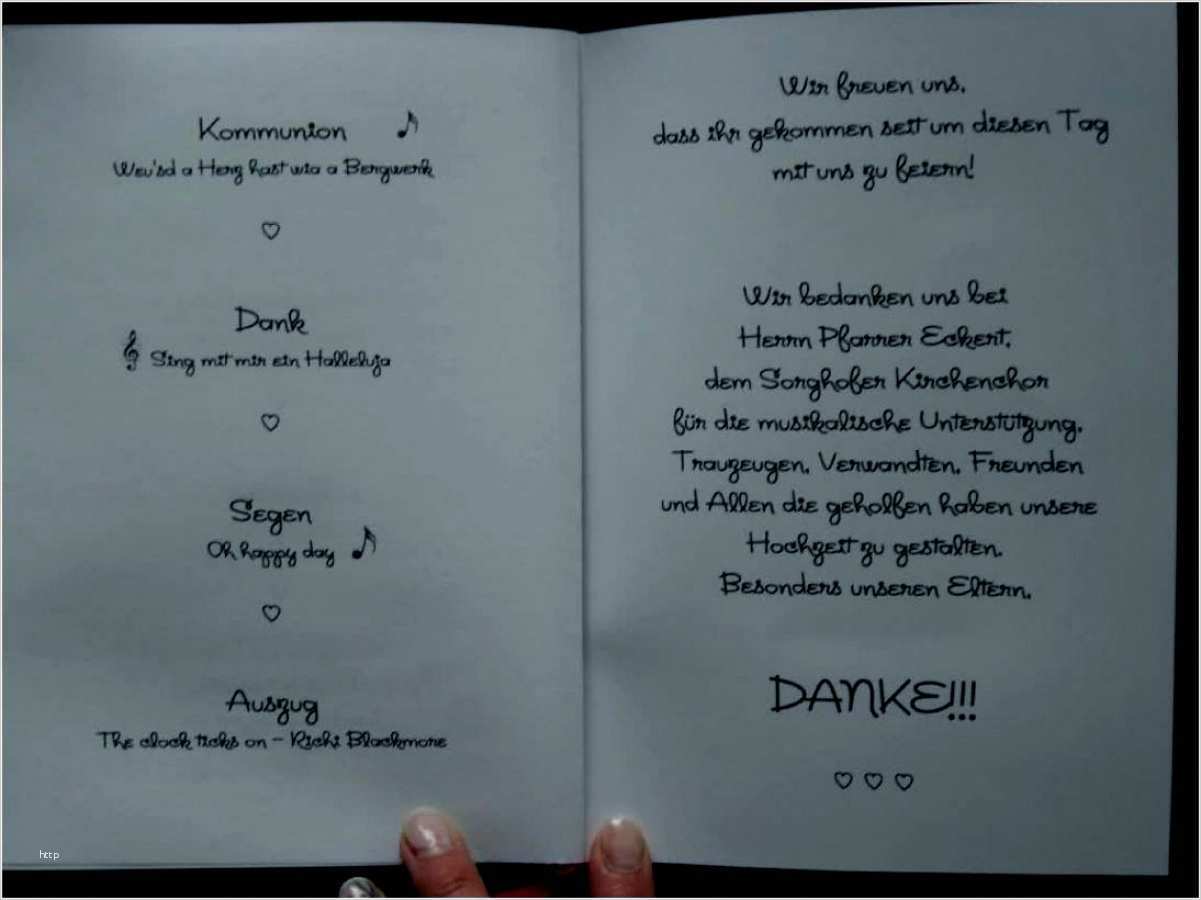 Kommunion
Weu'sd a Herz hast wia a Bergwerk
Dank
Sing mit mir ein Halleluja
Segen
Oh happy day
Auszug
The clock ticks on - Richi Blackmore
http
Wir freuen uns,
dass ihr gekommen seit um diesen Tag
mit uns zu feiern!
Wir bedanken uns bei
Herrn Pfarrer Eckert,
dem Sorghofer Kirchenchor
für die musikalische Unterstützung,
Trauzeugen, Verwandten, Freunden
und Allen die geholfen haben unsere
Hochzeit zu gestalten.
Besonders unseren Eltern.
DANKE!!!